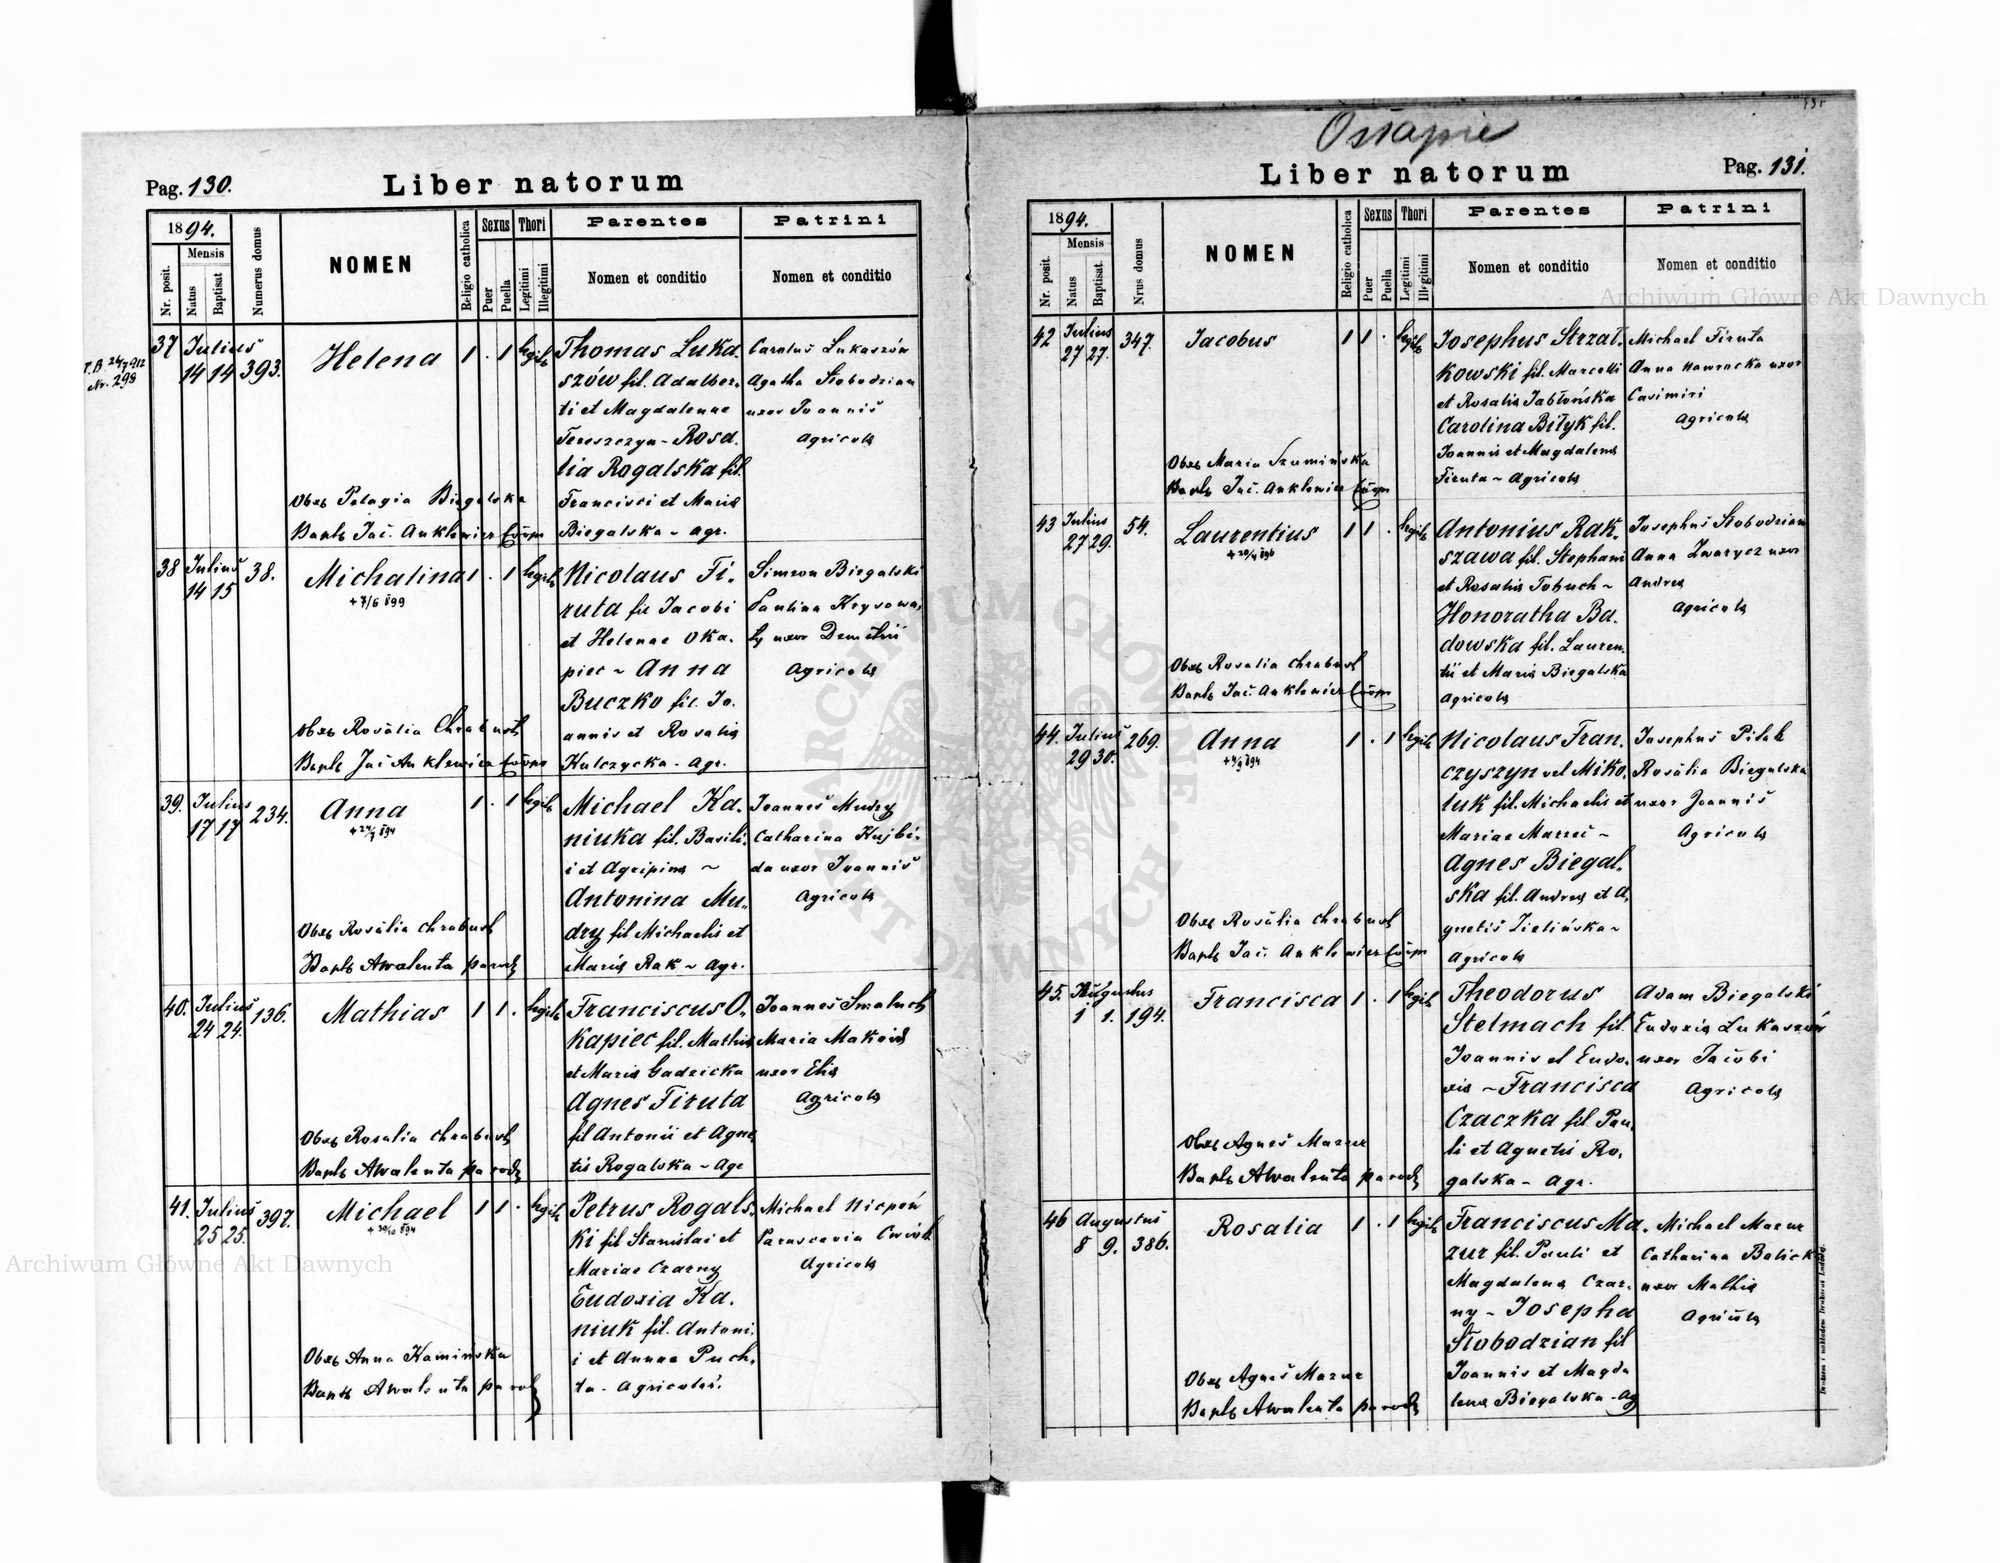 Ostapie
Pag. 130.
Liber natorum
1894.
Mensis
Nr. posit.
Natus
Baptisat.
Numerus domus
NOMEN
Religio catholica
Sexus
Puer
Puella
Thori
Legitimi
Illegitimi
Parentes
Nomen et conditio
Patrini
Nomen et conditio
Nr. 298
37 Julius 14 14 393.
Helena 1 . 1 legit.
Obst. Pelagia Biegalska
Bapt. Jac. Anklewicz Coop.
Thomas Luka-
szów fil. Adalber-
ti et Magdalenae
Tereszczyn ~ Rosa-
lia Rogalska fil.
Francisci et Mariae
Biegalska ~ agr.
Carolus Lukaszów
Agatha Słobodzian
uxor Joannis
Agricolae
38 Julius 14 15 38.
Michalina 1 . 1 legit.
+ 7/6 899
Obst. Rosalia Chrabust
Bapt. Jac. Anklewicz Coop.
Nicolaus Fi-
ruta fil. Jacobi
et Helenae Oka-
piec ~ Anna
Buczko fil. Jo-
annis et Rosaliae
Kulczycka - Agr.
Simeon Biegalski
Paulina Krysowa-
ty uxor Demetrii
Agricolae
39. Julius 17 17 234.
Anna 1 . 1 legit.
Obst. Rosalia Chrabust
Bapt. Awalenta paroch
Michael Ka-
niuka fil. Basili-
i et Agripinae ~
Antonina Mu-
dry fil Michaelis et
Mariae Rak ~ Agr.
Joannes Mudry
Catharina Kujbi-
da uxor Joannis
Agricolae
40. Julius 24 24. 136.
Mathias 1 1 . legit.
Obst. Rosalia Chrabust
Bapt. Awalenta paroch
Franciscus O-
kapiec fil. Mathiae
et Mariae Gadzicka
Agnes Firuta
fil Antonii et Agne-
tis Rogalska ~ Agr
Joannes Smaluch
Maria
uxor Eliae
Agricolae
41. Julius 25 25. 397.
Michael 1 1 . legit.
+ 30/10 894
Obst. Anna Kaminska
Bapt. Awalenta paroch
Petrus Rogals-
ki fil Stanislai et
Mariae Czarny
Eudoxia Ka-
niuk fil. Antoni-
i et Annae Puch-
ta - Agricolae.
Michael Nicpoń
Parascevia
Agricolae
Pag. 131.
Liber natorum
1894.
Mensis
Nr. posit.
Natus
Baptisat.
Nrus domus
NOMEN
Religio catholica
Sexus
Puer
Puella
Thori
Legitimi
Illegitimi
Parentes
Nomen et conditio
Patrini
Nomen et conditio
42 Julius 27 27. 347.
Jacobus 1 1 . legit.
Obst. Maria Szumińska
Bapt. Jac. Anklewicz Coop.
Josephus Strzał-
kowski fil. Marcelli
et Rosaliae Jabłońska
Carolina Biłyk fil.
Joannis et Magdalenae
Firuta ~ Agricolae
Michael Firuta
Anna Nawrocka uxor
Casimiri
Agricolae
43 Julius 27 29. 54.
Laurentius 1 1 . legit.
Obst. Rosalia Chrabust
Bapt. Jac. Anklewicz Coop.
Antonius Rak-
szawa fil. Stephani
et Rosaliae Tobuch ~
Honoratha Ba-
dowska fil. Lauren-
tii et Mariae Biegalska
Agricolae
Josephus Słobodzian
Anna Zwarycz uxor
Andreae
Agricolae
44. Julius 29 30. 269.
Anna 1 . 1 legit.
+ 4/9 894
Obst. Rosalia Chrabust
Bapt. Jac. Anklewicz Coop.
Nicolaus Fran-
czyszyn vel Miko-
luk fil. Michaelis et
Mariae
Agnes Biegal-
ska fil. Andreae et A-
gnetis Zielińska ~
Agricolae
Josephus
Rosalia Biegalska
uxor Joannis
Agricolae
45. Augustus 1 1. 194.
Francisca 1 . 1 legit.
Obst. Agnes Mazur
Bapt. Awalenta paroch
Theodorus
Stelmach fil.
Joannis et Eudo-
xiae ~ Francisca
Czaczka fil Pau-
li et Agnetis Ro-
galska ~ Agr.
Adam Biegalski
Eudoxia Lukaszów
uxor Jacobi
Agricolae
46 Augustus 8 9. 386.
Rosalia 1 . 1 legit.
Obst. Agnes Mazur
Bapt. Awalenta paroch
Franciscus Ma-
zur fil. Pauli et
Magdalenae Czar-
ny ~ Josepha
Słobodzian fil
Joannis et Magda
lenae Biegalska - Agr
Michael Mazur
Catharina Balicka
uxor Mathiae
Agricolae
Archiwum Główne Akt Dawnych
Archiwum Główne Akt Dawnych
ARCHIWUM GŁÓWNE AKT DAWNYCH